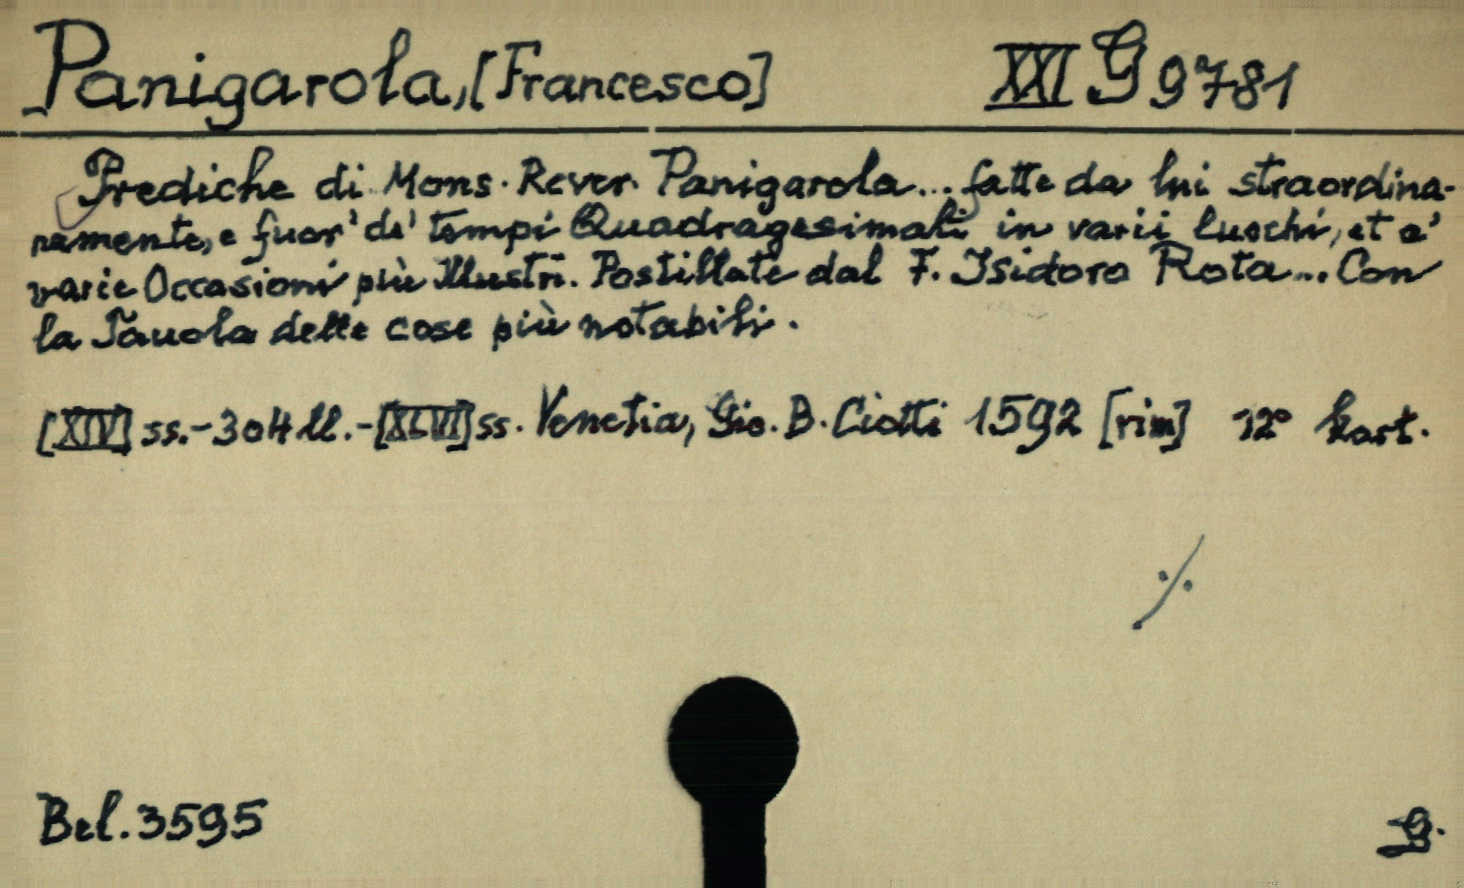 Panigarola, [Francesco] XXI G 9781
Prediche di Mons. Rever. Panigarola... fatte da lui straordina-
riamente, e fuor' de' tempi Quadragesimali in varii luochi, et a'
varie Occasioni più Illustri. Postillate dal F. Isidoro Rota... Con
la Tauola delle cose più notabili.
[XIV] ss.-304 ll.-[XLVI] ss. Venetia, Gio. B. Ciotti 1592 [rim] 12° kart.
Bel. 3595
G.